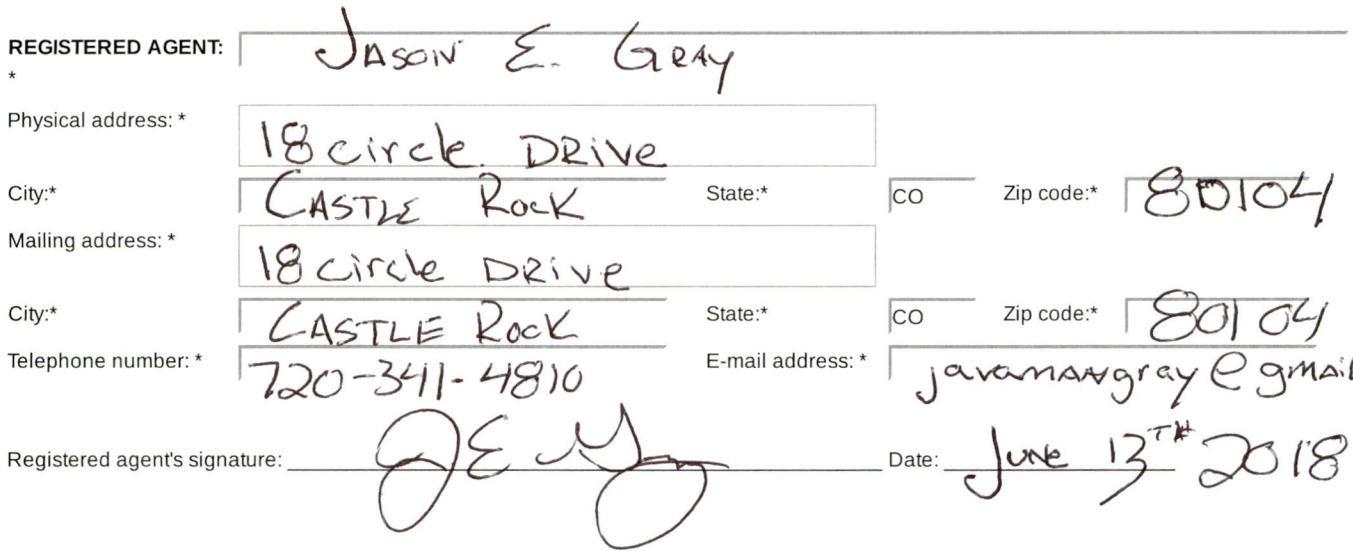 REGISTERED AGENT: JASON E. GRAY
*
Physical address: * 18 circle DRive
City:* CASTLE ROCK State:* CO Zip code:* 80104
Mailing address: * 18 circle DRive
City:* CASTLE ROCK State:* CO Zip code:* 80104
Telephone number: * 720-341-4810 E-mail address: * javamangray@gmail
Registered agent's signature: JE Gray Date: June 13TH 2018